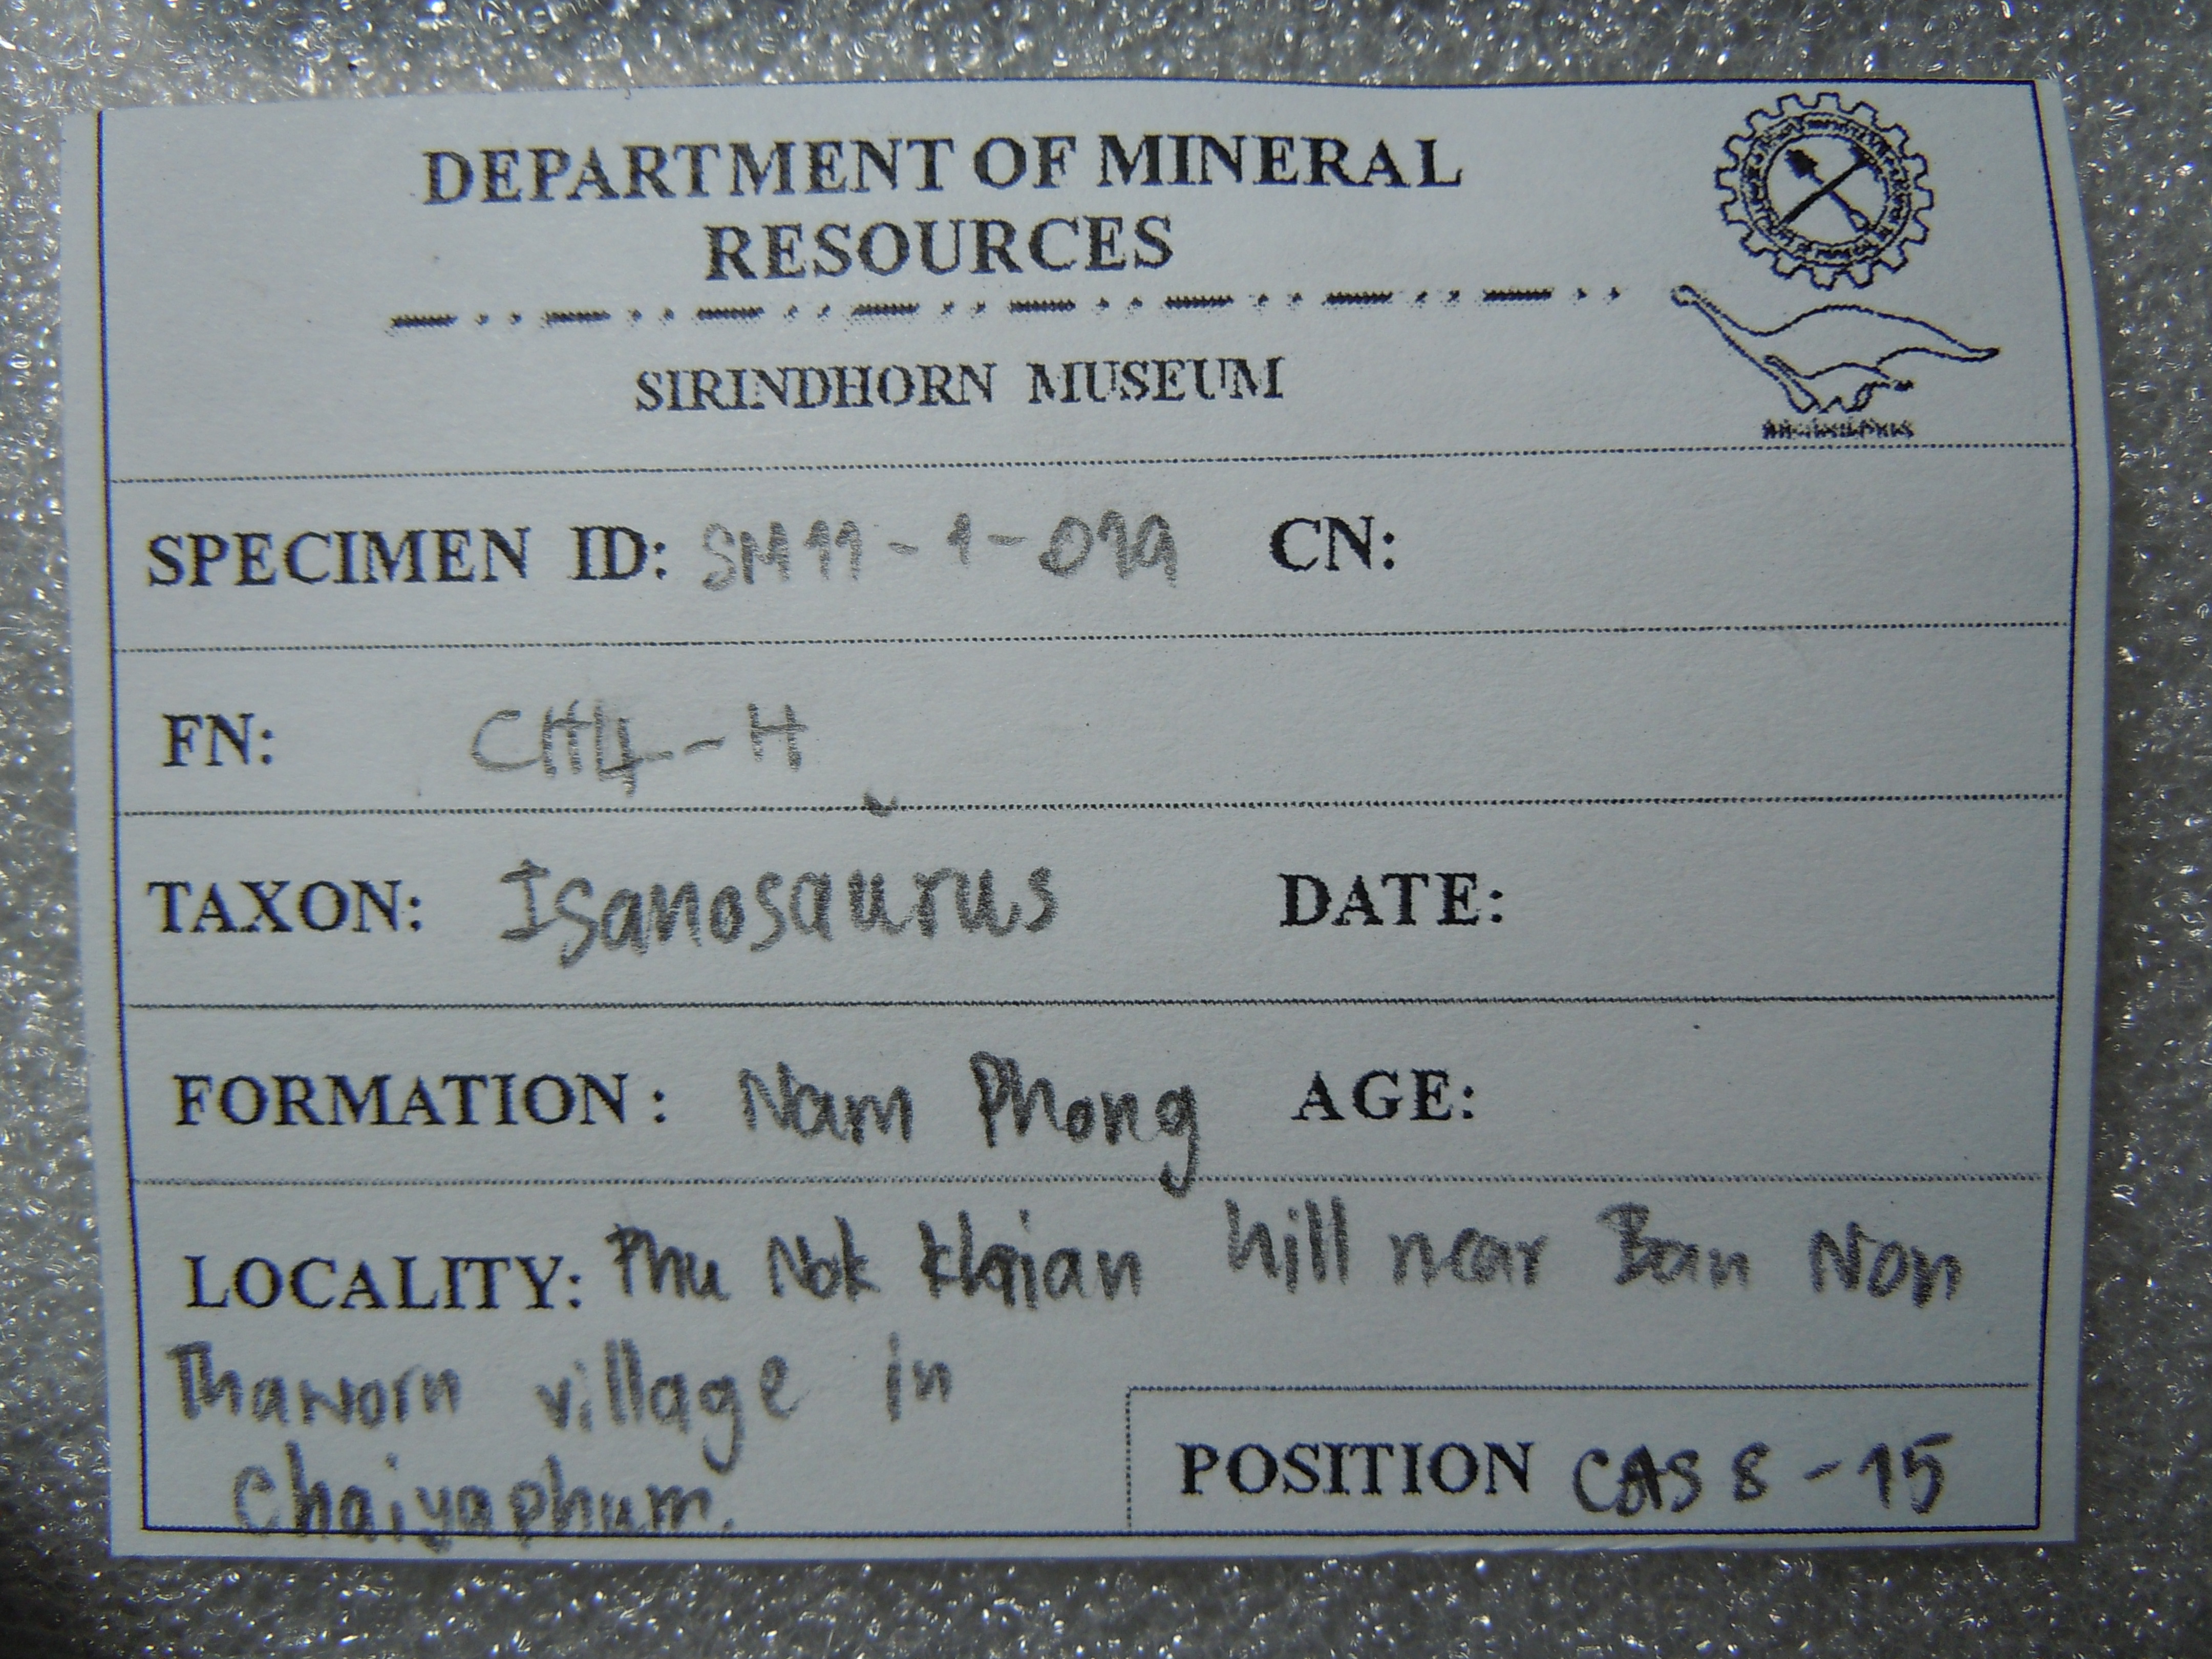 DEPARTMENT OF MINERAL
RESOURCES
SIRINDHORN MUSEUM
SPECIMEN ID: SM11-1-019 CN:
FN: CH4-H
TAXON: Isanosaurus DATE:
FORMATION: Nam Phong AGE:
LOCALITY: Phu Nok Khian hill near Ban Non
Thaworn village in
Chaiyaphum.
POSITION CAS 8-15